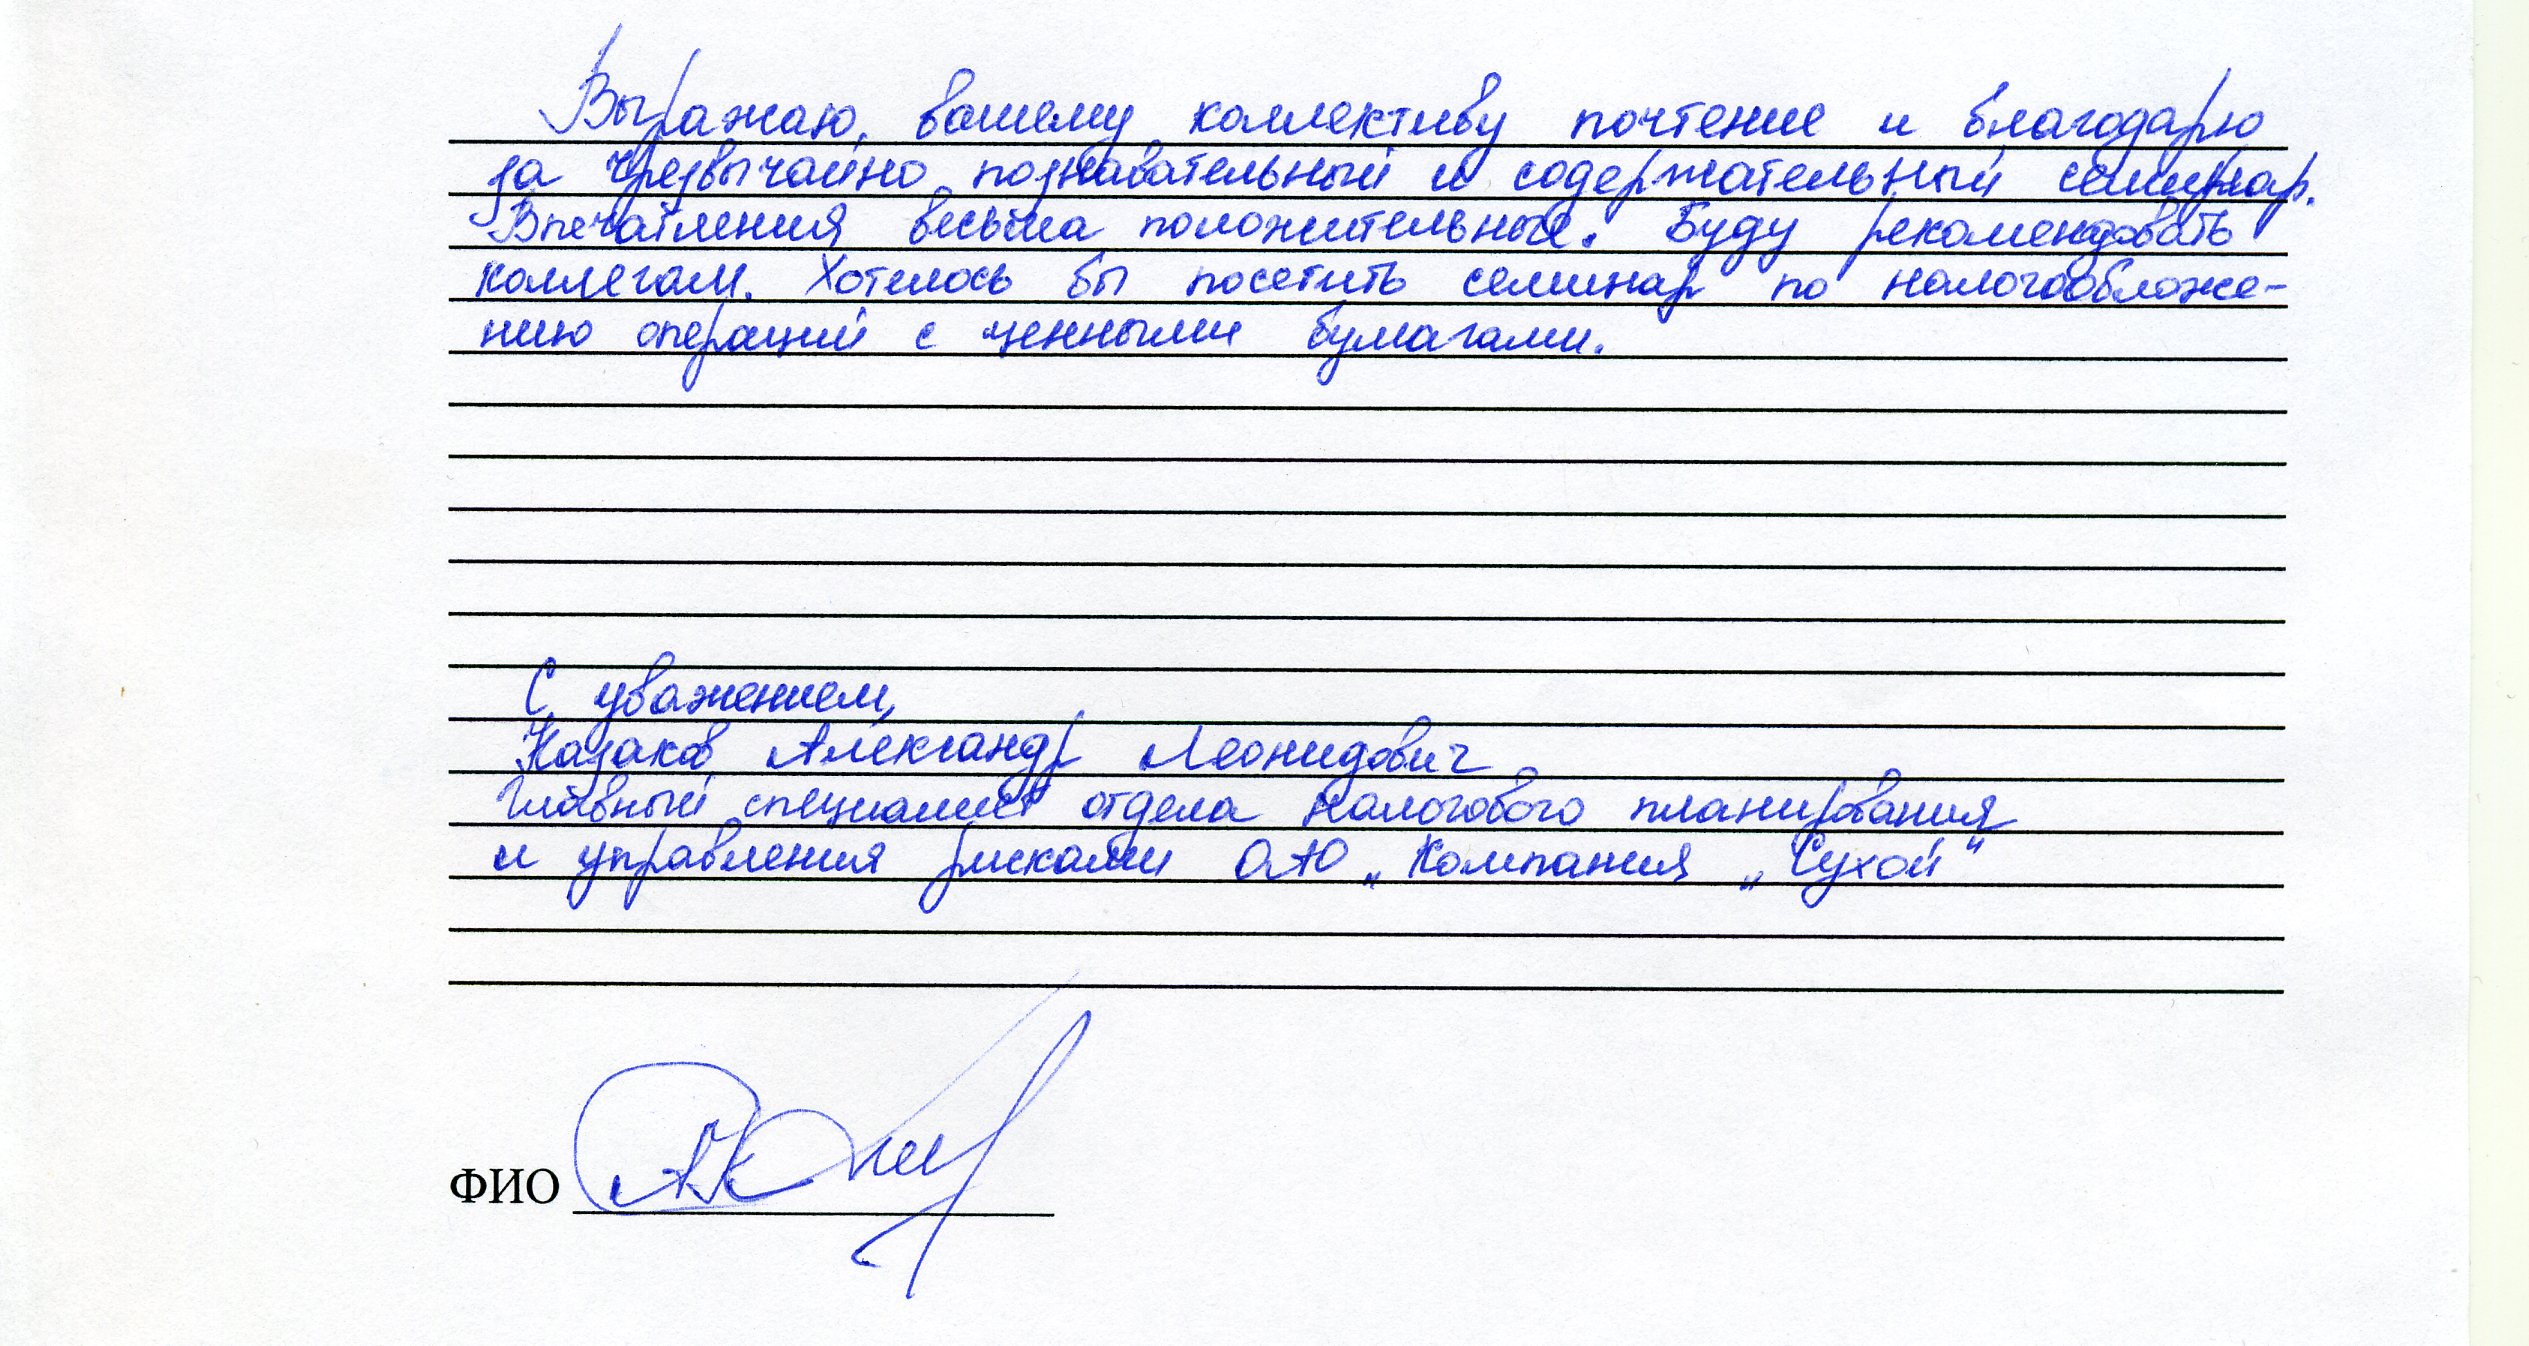 Выражаю вашему коллективу почтение и благодарю
за чрезвычайно познавательный и содержательный семинар.
Впечатления весьма положительные. Буду рекомендовать
коллегам. Хотелось бы посетить семинар по налогообложе-
нию операций с ценными бумагами.
С уважением,
Казаков Александр Леонидович
Главный специалист отдела налогового планирования
и управления рисками ОАО „Компания „Сухой"
ФИО